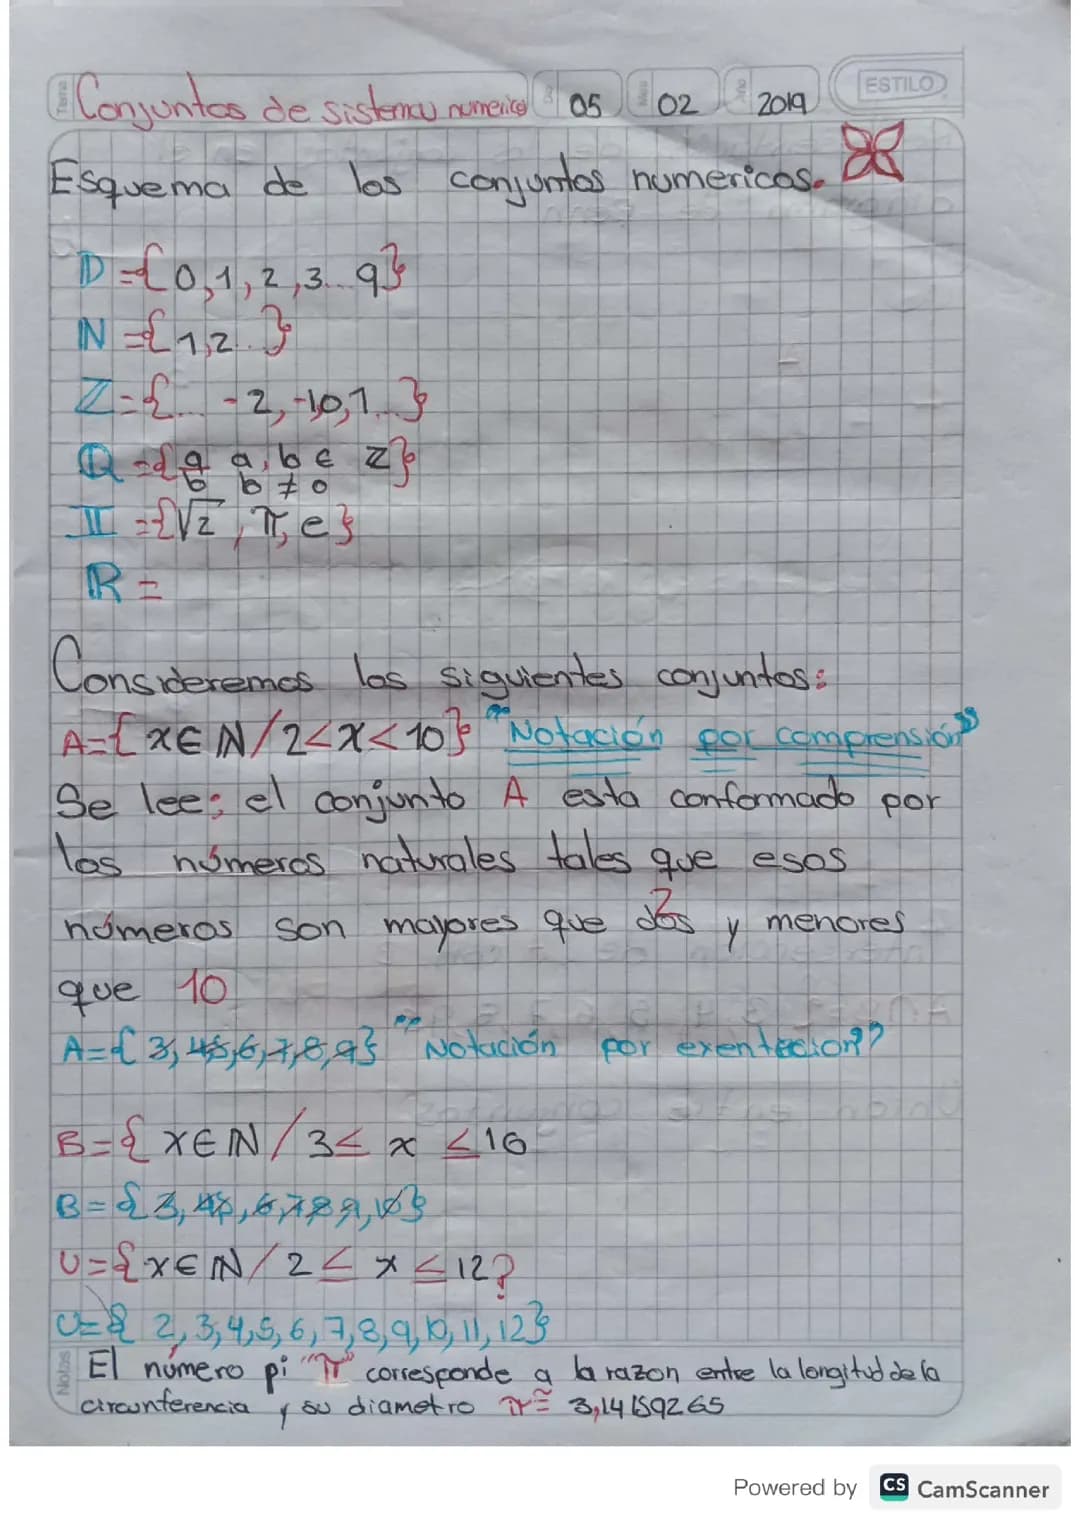 Tema Conjuntos de sistemas numerico Día 05 Mes 02 Año 2019 ESTILO
Esquema de los conjuntos numericos.
D = {0,1,2,3...9}
N = {1,2...}
Z = {... -2,-1,0,1...}
Q = {a/b a,b ∈ Z}
b ≠ 0
II = {√2, π, e}
R =
Consideremos los siguientes conjuntos:
A = {x ∈ N / 2 < x < 10} "Notación por comprensión"
Se lee: el conjunto A esta conformado por
los números naturales tales que esos
números son mayores que dos y menores
que 10
A = {3,4,5,6,7,8,9} "Notación por exentecion"
B = {x ∈ N / 3 ≤ x ≤ 10
B = {3,4,5,6,7,8,9,10}
U = {x ∈ N / 2 ≤ x ≤ 12}
U = {2,3,4,5,6,7,8,9,10,11,12}
Notas El número pi "π" corresponde a la razon entre la longitud de la
circunferencia y su diametro π ≅ 3,14159265
Powered by CS CamScanner